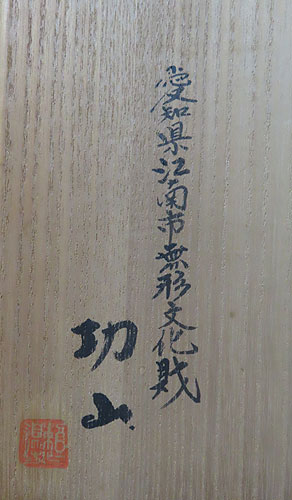 愛知県江南市無形文化財
功山